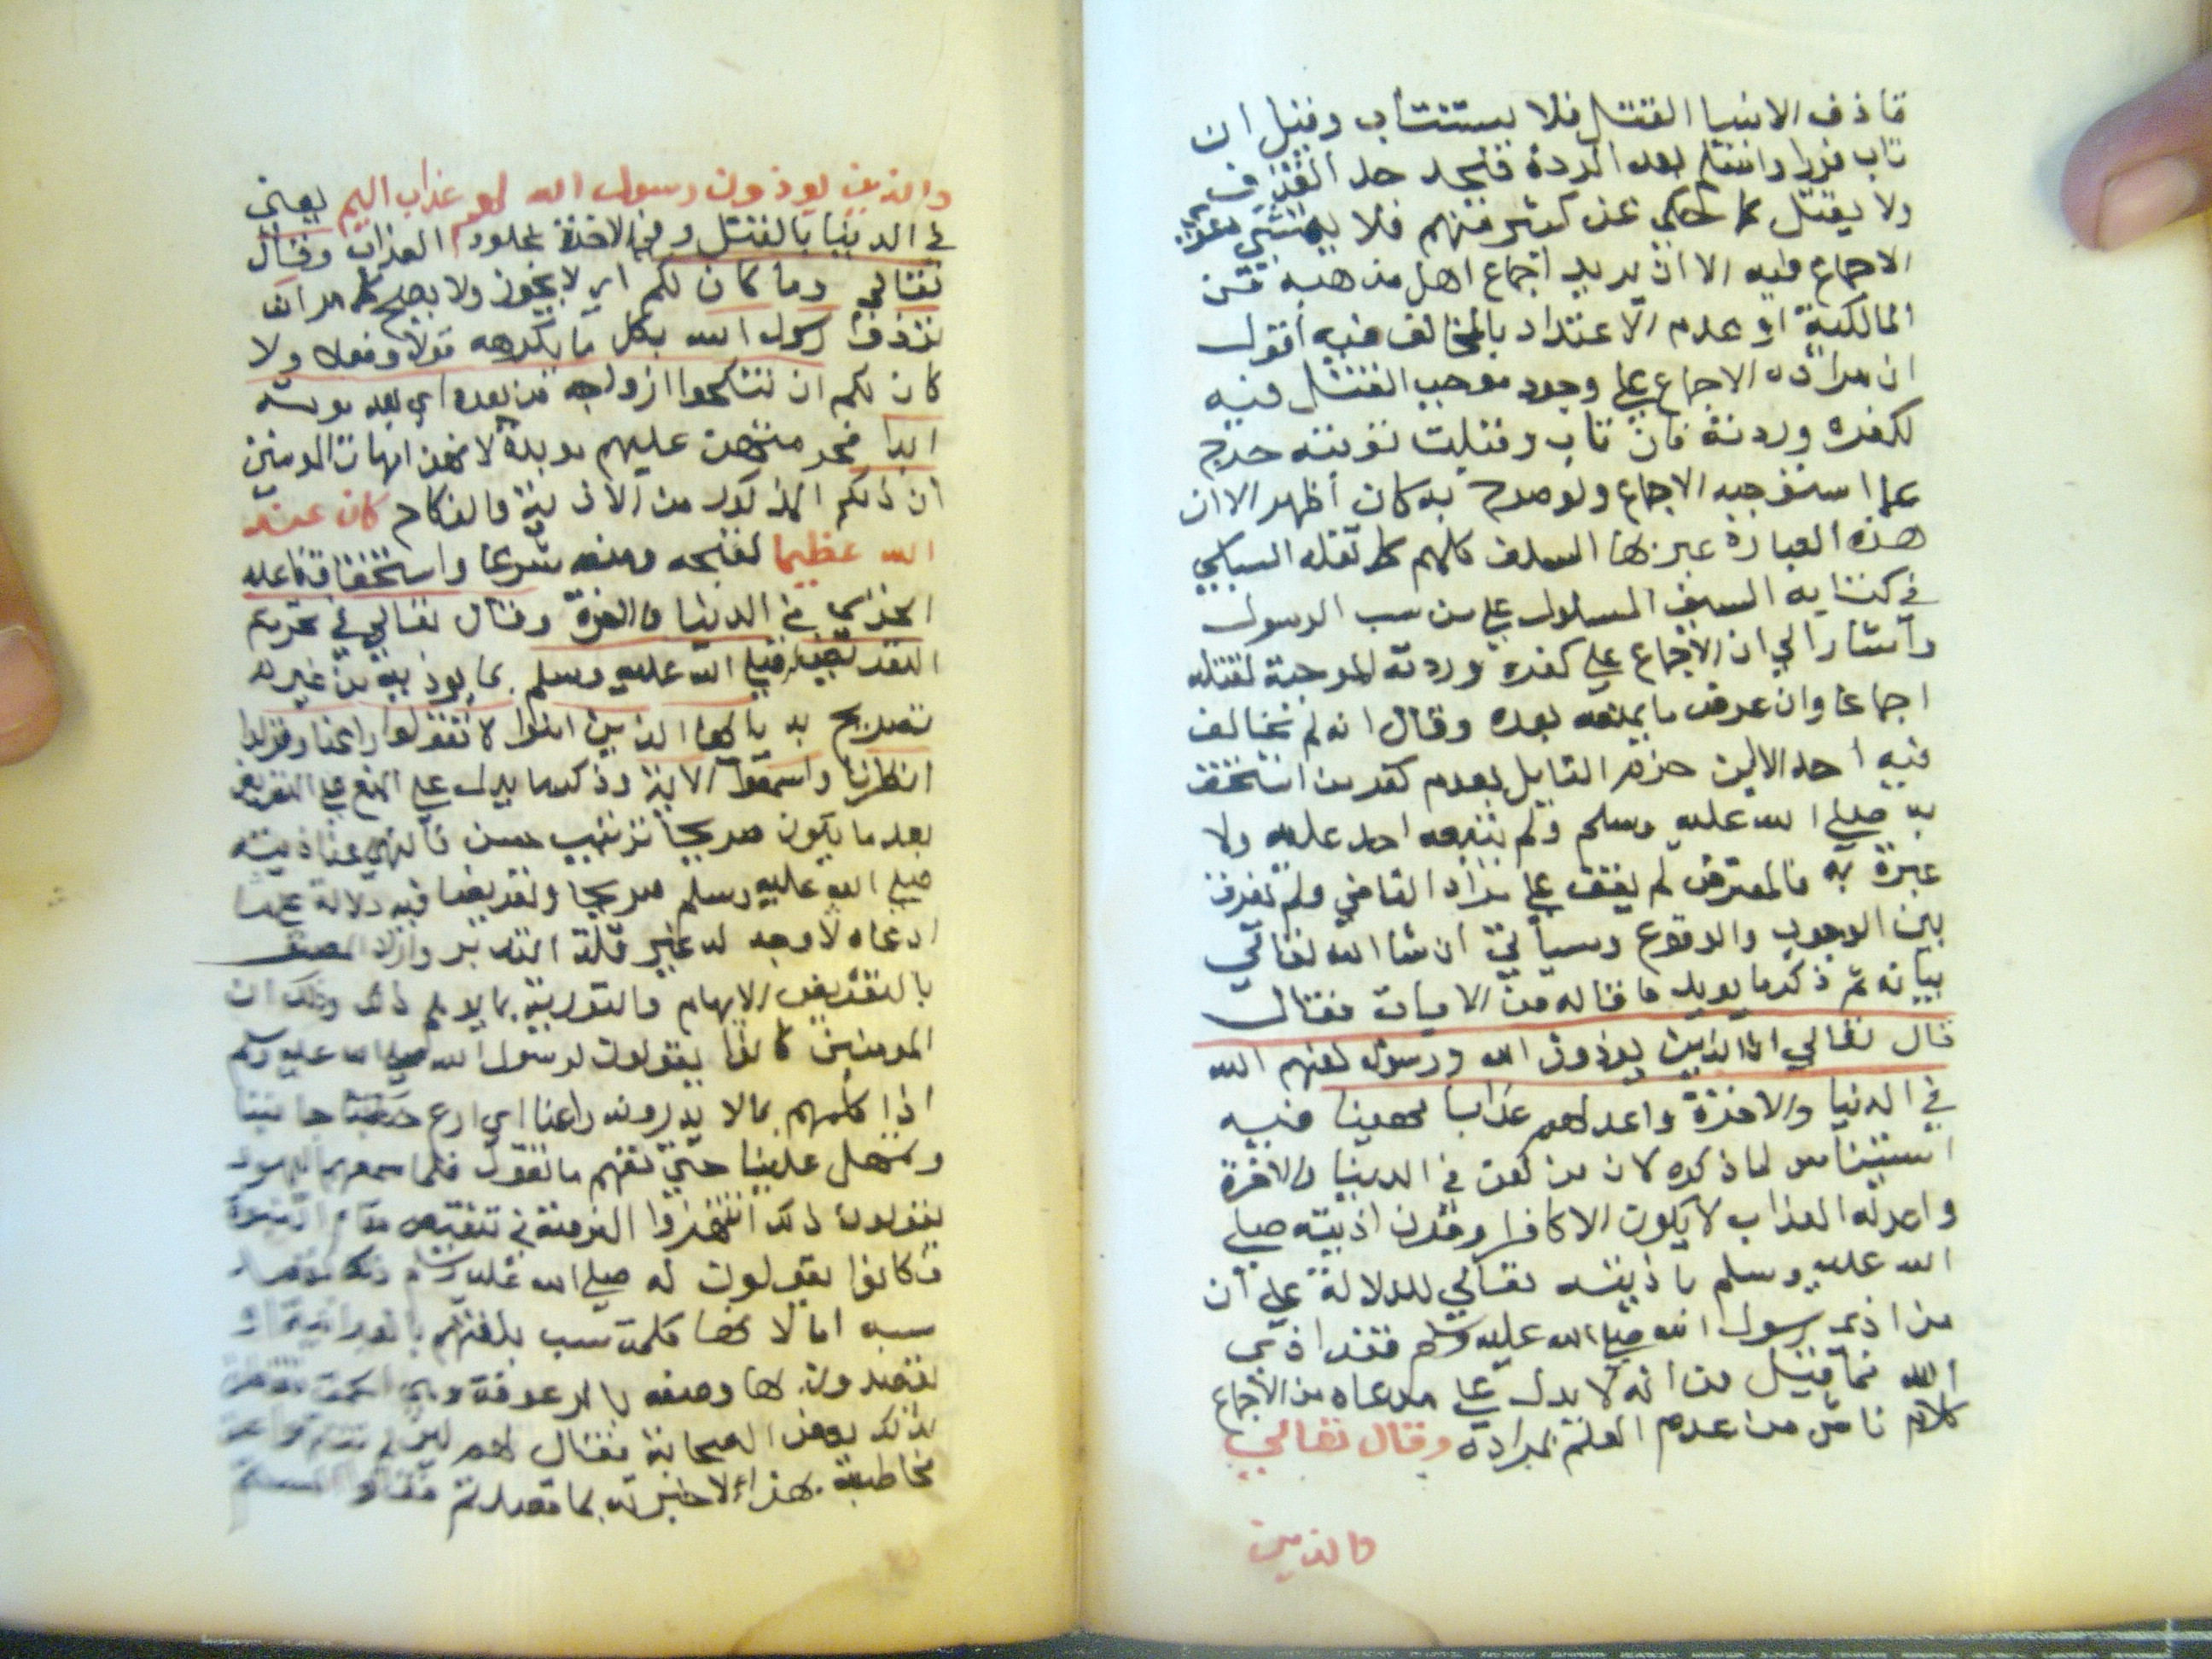 قاذف الانبيا القتل فلا يستتاب وقيل ان
تاب فورا واسلم بعد الردة فيحد حد القذف
ولا يقتل كما حكي عن كثير منهم فلا
الاجماع فيه الا ان يريد اجماع اهل مذهبه من
المالكية او عدم الاعتداد بالمخالف فيه اقول
ان مراده الاجماع علي وجود موجب القتل فيه
لكفره وردته فان تاب وقبلت توبته خرج
عما استوجبه الاجماع ولو صرح به كان اظهر الا ان
هذه العبارة عبر بها السلف كلهم كما نقله السبكي
في كتابه السيف المسلول علي من سب الرسول
واشار الي ان الاجماع علي كفره وردته الموجبة لقتله
اجماعا وان عرض ما يمنعه بعده وقال انه لم يخالف
فيه احد الا ابن حزم القايل بعدم كفر من استخف
به صلي الله عليه وسلم ولم يتبعه احد عليه ولا
عبرة به فالمعترض لم يقف علي مراد القاضي ولم يفرق
بين الوجوب والوقوع وسياتي ان شا الله تعالي
بيانه ثم ذكر ما يويد ما قاله من الايات فقال
قال تعالي ان الذين يوذون الله ورسوله لعنهم الله
في الدنيا والاخرة واعد لهم عذابا مهينا فيه
استيناس لما ذكره لان من لعن في الدنيا والاخرة
واعد له العذاب لا يكون الا كافرا وقرن اذيته صلي
الله عليه وسلم باذيته تعالي للدلالة علي ان
من اذي رسول الله صلي الله عليه وسلم فقد اذي
الله فما قيل من انه لا يدل علي مدعاه من الاجماع
كلام ناش من عدم العلم بمراده وقال تعالي
والذين
والذين يوذون رسول الله لهم عذاب اليم يعني
في الدنيا بالقتل وفي الاخرة بخلود العذاب وقال
تعالي وما كان لكم اي لا يجوز ولا يصح لكم ان
توذوا رسول الله بكل ما يكرهه قولا وفعلا ولا
كان لكم ان تنكحوا ازواجه من بعده اي بعد موته
ابدا فحرمتهن عليهم موبدة لانهن امهات المومنين
ان ذلكم المذكور من الاذية والنكاح كان عند
الله عظيما لقبحه ومنعه شرعا واستحقاق فاعله
الخزي في الدنيا والاخرة وقال تعالي في تحريم
التعريض صلي الله عليه وسلم بما يوذيه من غير
تصريح به يا ايها الذين امنوا لا تقولوا راعنا وقولوا
انظرنا واسمعوا الاية وذكر ما يدل علي المنع علي التعريض
بعد ما يكون صريحا ترتيب حسن فالنهي عن اذيته
صلي الله عليه وسلم صريحا وتعريضا فيه دلالة علي ما
ادعاه لا وجه له غير قلة التدبر واراد المصنف
بالتعريض الايهام والتورية بما يوهم ذلك وذلك ان
المومنين كانوا يقولون لرسول الله صلي الله عليه وسلم
اذا كلمهم بما لا يدرونه راعنا اي ارع جانبنا
وتمهل علينا حتي نفهم ما تقول فلما سمعهم اليهود
يقولون ذلك انتهزوا الفرصة في تنقيص مقام النبوة
فكانوا يقولون له صلي الله عليه وسلم ذلك
سبه اما لانها كلمة سب بلغتهم بالعبرانية او
يقصدون بها وصفه بالرعونة وهي الحمق
لذلك بعض الصحابة فقال لهم لين
مخاطبة بهذا لاخبرته بما قصدتم فقالوا